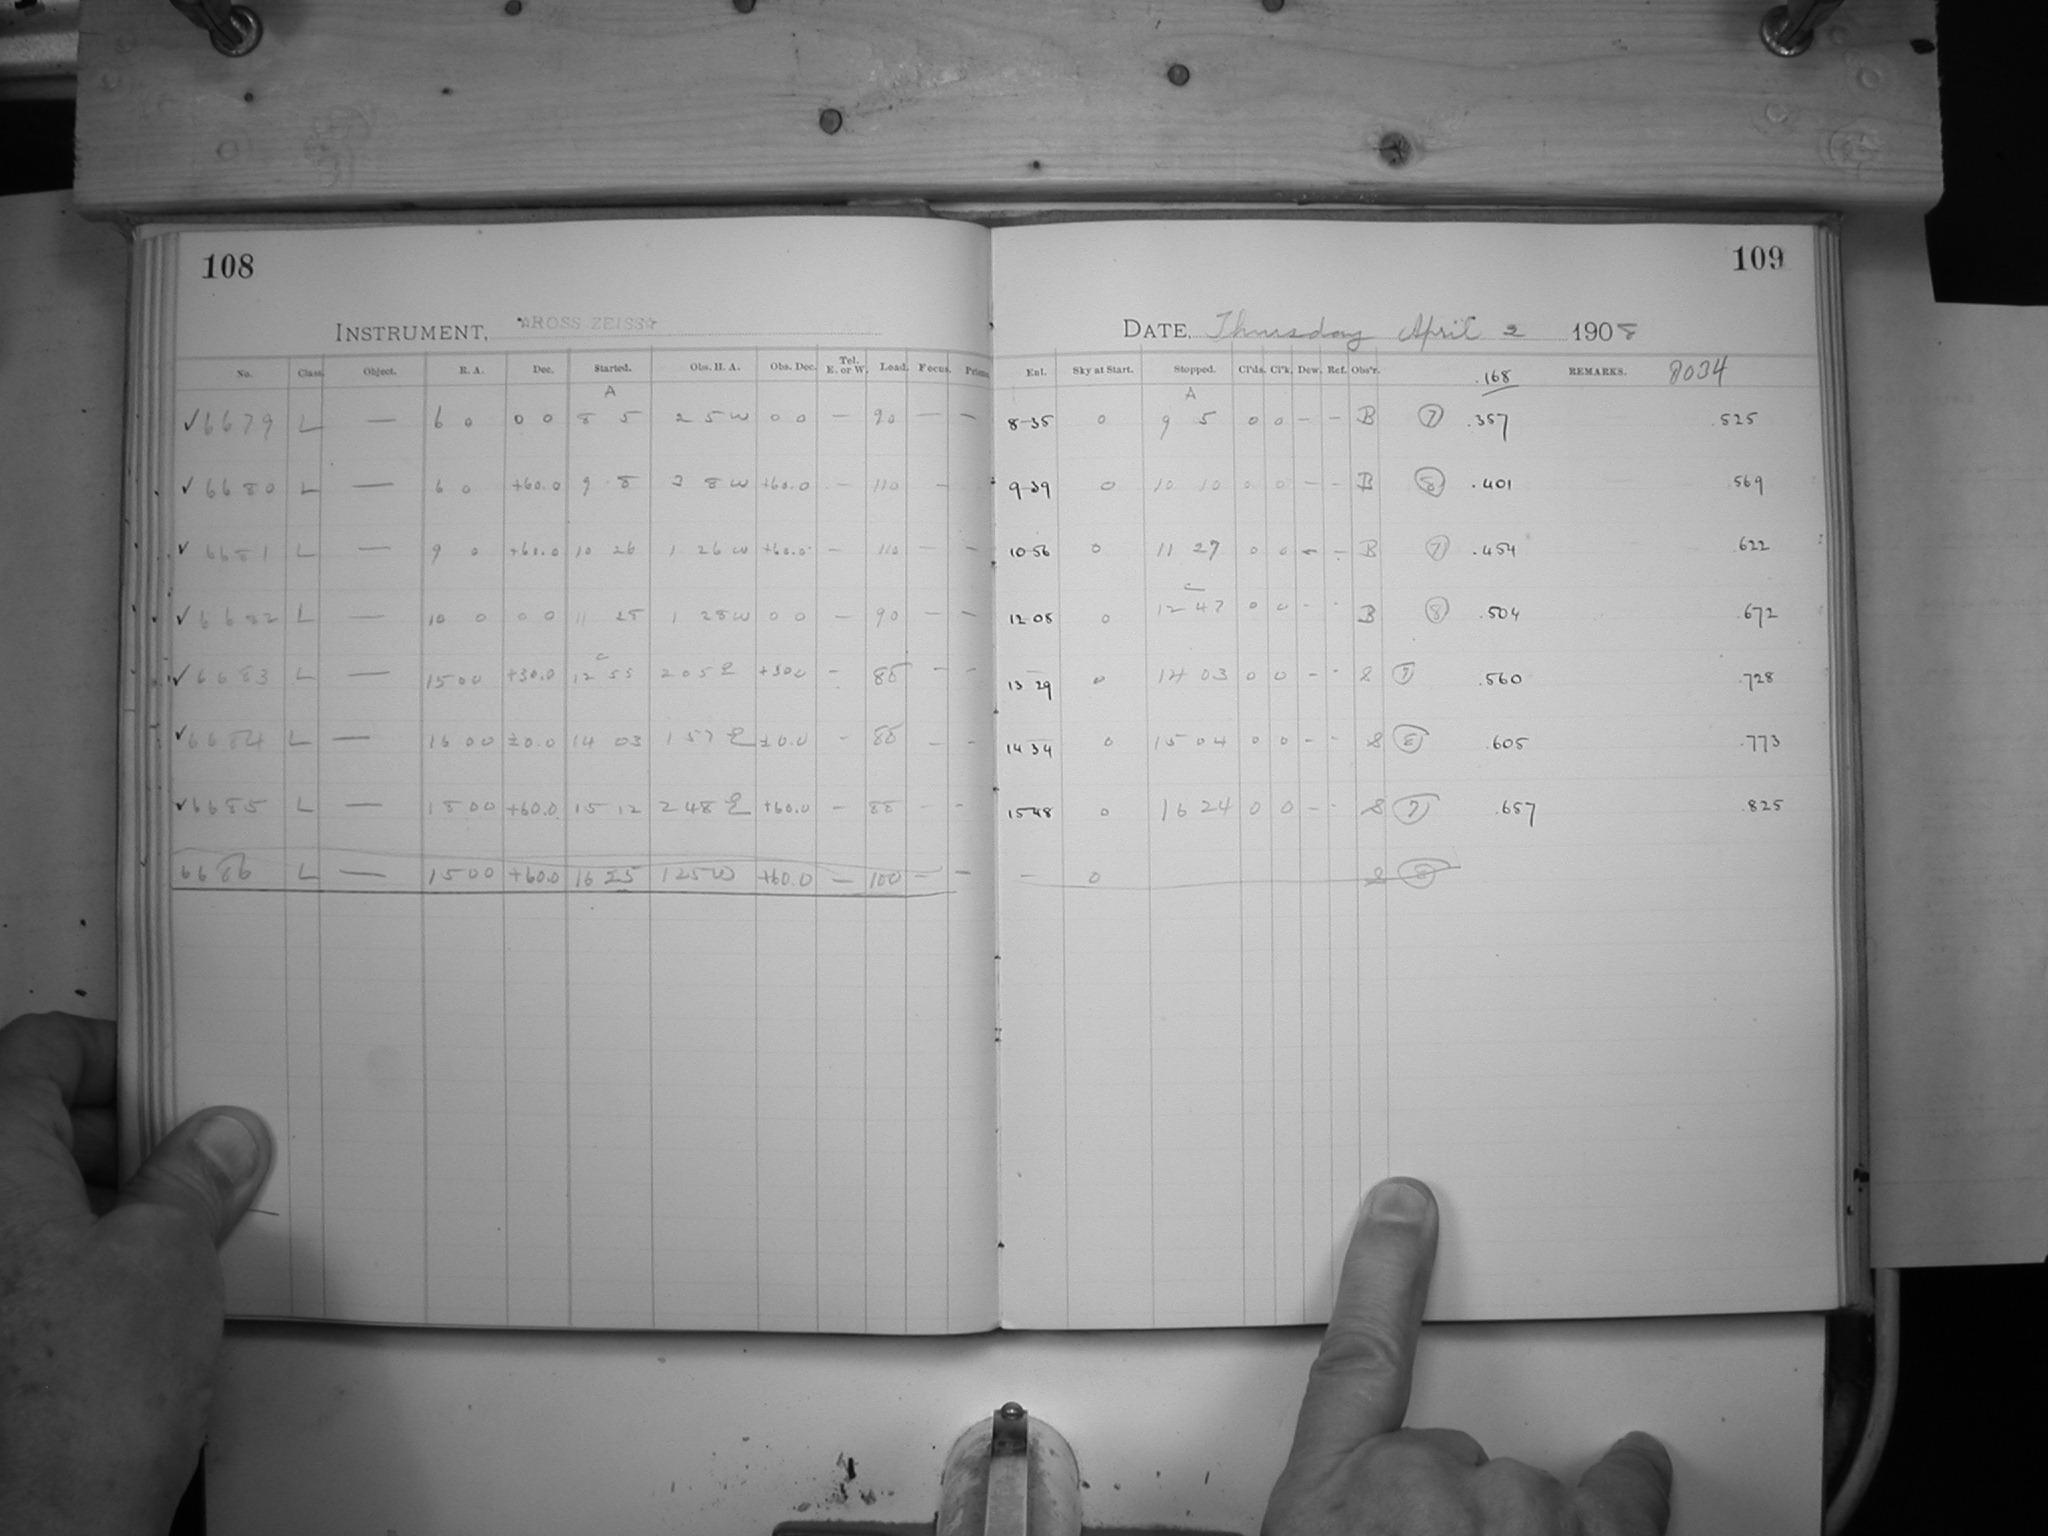 108
INSTRUMENT, ☆ROSS ZEISS☆
No. Class. Object. R. A. Dec. Started. Obs. H. A. Obs. Dec. Tel. E. or W. Load. Focus. Prisms.
A
✓6679 L — 6 0 0 0 8 5 2 5 W 0 0 — 90 — —
✓6680 L — 6 0 +60.0 9 8 3 8 W +60.0 — 110 — —
✓6681 L — 9 0 +60.0 10 26 1 26 W +60.0 — 110 — —
✓6682 L — 10 0 0 0 11 25 1 28 W 0 0 — 90 — —
C
✓6683 L — 15 00 +30.0 12 55 2 05 E +30.0 — 88 — —
✓6684 L — 16 00 ±0.0 14 03 1 57 E ±0.0 — 88 — —
✓6685 L — 18 00 +60.0 15 12 2 48 E +60.0 — 88 — —
6686 L — 15 00 +60.0 16 25 1 25 W +60.0 — 100 — —
109
DATE, Thursday April 2 1908
Ent. Sky at Start. Stopped. Cl'ds. Cl'k. Dew. Ref. Obs'r. .168 REMARKS. 8034
A
8-35 0 9 5 0 0 — — B 7 .357 .525
9-39 0 10 10 0 0 — — B 8 .401 .569
10-56 0 11 27 0 0 — — B 7 .454 .622
C
12-05 0 12 47 0 0 — — B 8 .504 .672
13 29 0 14 03 0 0 — — S 7 .560 .728
14 34 0 15 04 0 0 — — S 8 .605 .773
15 48 0 16 24 0 0 — — S 7 .657 .825
— 0 S 8